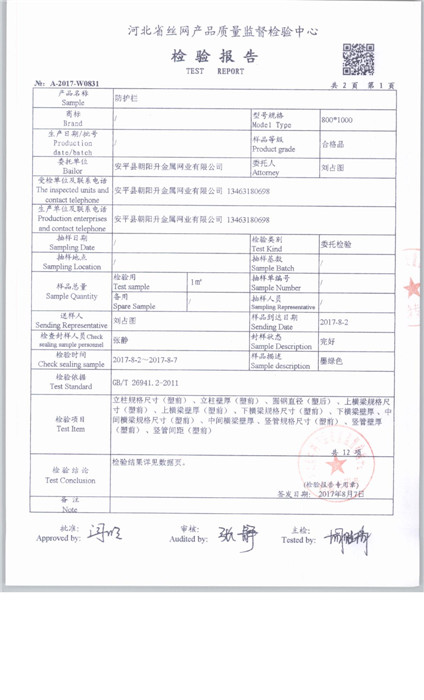 河北省丝网产品质量监督检验中心
检验报告
TEST REPORT
№: A-2017-W0831
共 2 页 第 1 页
产品名称 Sample 防护栏
商标 Brand / 型号规格 Model Type 800*1000
生产日期/批号 Production date/batch / 样品等级 Product grade 合格品
委托单位 Bailor 安平县朝阳升金属网业有限公司 委托人 Attorney 刘占图
受检单位及联系电话 The inspected units and contact telephone 安平县朝阳升金属网业有限公司 13463180698
生产单位及联系电话 Production enterprises and contact telephone 安平县朝阳升金属网业有限公司 13463180698
抽样日期 Sampling Date / 检验类别 Test Kind 委托检验
抽样地点 Sampling Location / 抽样基数 Sample Batch /
样品总量 Sample Quantity 检验用 Test sample 1㎡ 抽样单编号 Sample Number /
备用 Spare Sample / 抽样人员 Sampling Representative /
送样人 Sending Representative 刘占图 样品到达日期 Sending Date 2017-8-2
检查封样人员Check sealing sample personnel 张静 封样状态 Sample Description 完好
检验时间 Check sealing sample 2017-8-2～2017-8-7 样品描述 Sample description 墨绿色
检验依据 Test Standard GB/T 26941.2-2011
检验项目 Test Item
立柱规格尺寸（塑前）、立柱壁厚（塑前）、圆钢直径（塑后）、上横梁规格尺
寸（塑前）、上横梁壁厚（塑前）、下横梁规格尺寸（塑前）、下横梁壁厚 、中
间横梁规格尺寸（塑前）、中间横梁壁厚 、竖管规格尺寸（塑前）、竖管壁厚
（塑前）、竖管间距（塑前）
共 12 项
检验结论 Test Conclusion 检验结果详见数据页。
(检验报告专用章)
签发日期：2017年8月7日
备 注 Note
批准: Approved by:
审核: Audited by: 张静
主检: Tested by: